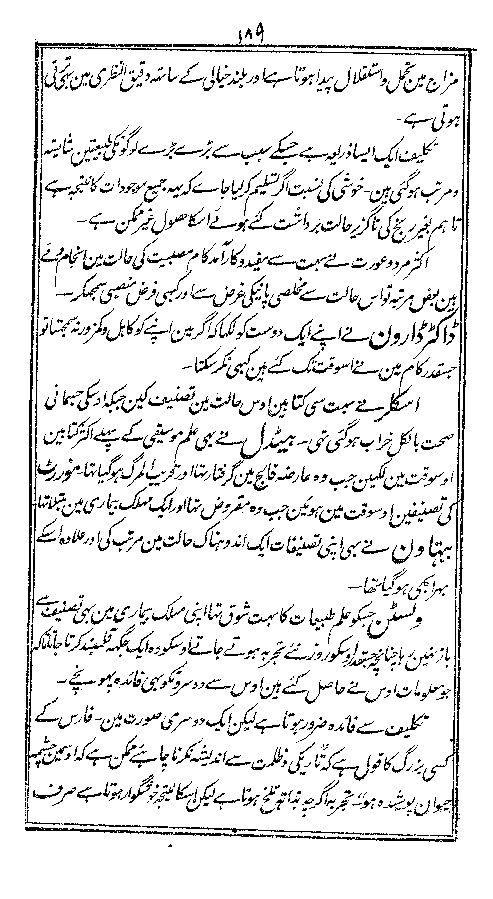 ۱۸۹
مزاج مین تحمل و استقلال پیدا ہوتا ہے اور بلند خیالی کے ساتھ دقیق النظری مین بھی ترقی
ہوتی ہے۔
تکلیف ایک ایسا ذریعہ ہے جسکے سبب سے بڑے بڑے لوگونکی طبیعتین شایستہ
و مرتب ہو گئی ہین۔ خوشی کی نسبت اگر تسلیم کر لیا جاے کہ یہہ جمیع موجودات کا نتیجہ ہے
تاہم بغیر رنج کی ناگزیر حالت برداشت کئے ہوئے اسکا حصول غیر ممکن ہے۔
اکثر مرد و عورت نے بہت سے مفید و کارآمد کام مصیبت کی حالت مین انجام دئے
ہین بعض مرتبہ تو اس حالت سے مخلصی پانیکی غرض سے اور کبھی فرض منصبی سمجھکر۔
ڈاکٹر ڈارون نے اپنے ایک دوست کو لکھا کہ اگر مین اپنے کو کاہل و کمزور نہ سمجھتا تو
جسقدر کام مین نے اسوقت تک کئے ہین کبھی نکر سکتا۔
اسکلر نے بہت سی کتابین اوس حالت مین تصنیف کین جبکہ اوسکی جسمانی
صحت بالکل خراب ہو گئی تھی۔ ہینڈل نے بھی علم موسیقی کے پہلے اکثر کتابین
اوسوقت مین لکھین جب وہ عارضہ فالج مین گرفتار تھا اور قریب المرگ ہو گیا تھا۔ موزرٹ
کی تصنیفین اوسوقت مین ہوئین جب وہ مقروض تھا اور ایک مہلک بیماری مین مبتلا تھا
بیتاون نے بھی اپنی تصنیفات ایک اندوہناک حالت مین مرتب کی اور علاوہ اسکے
بہرا بھی ہو گیا تھا۔
ولسٹن جسکو علم طبیعات کا بہت شوق تھا اپنی مہلک بیماری مین بھی تصنیف سے
باز نہین رہا چنانچہ جسقدر اوسکو روز نئے تجربہ ہوتے جاتے اوسکو وہ ایک جگہہ قلمبند کرتا جاتا تھا کہ
جو معلومات اوس نے حاصل کئے ہین اوس سے دوسرونکو بھی فائدہ پہونچے۔
تکلیف سے فائدہ ضرور ہوتا ہے لیکن ایک دوسری صورت مین۔ فارس کے
کسی بزرگ کا قول ہے کہ "تاریکی و ظلمت سے اندیشہ نکرنا چاہئے ممکن ہے کہ اوسمین چشمہ
حیوان پوشیدہ ہو" تجربہ اگرچہ بذاتہ تلخ ہوتا ہے لیکن اسکا نتیجہ خوشگوار ہوتا ہے صرف